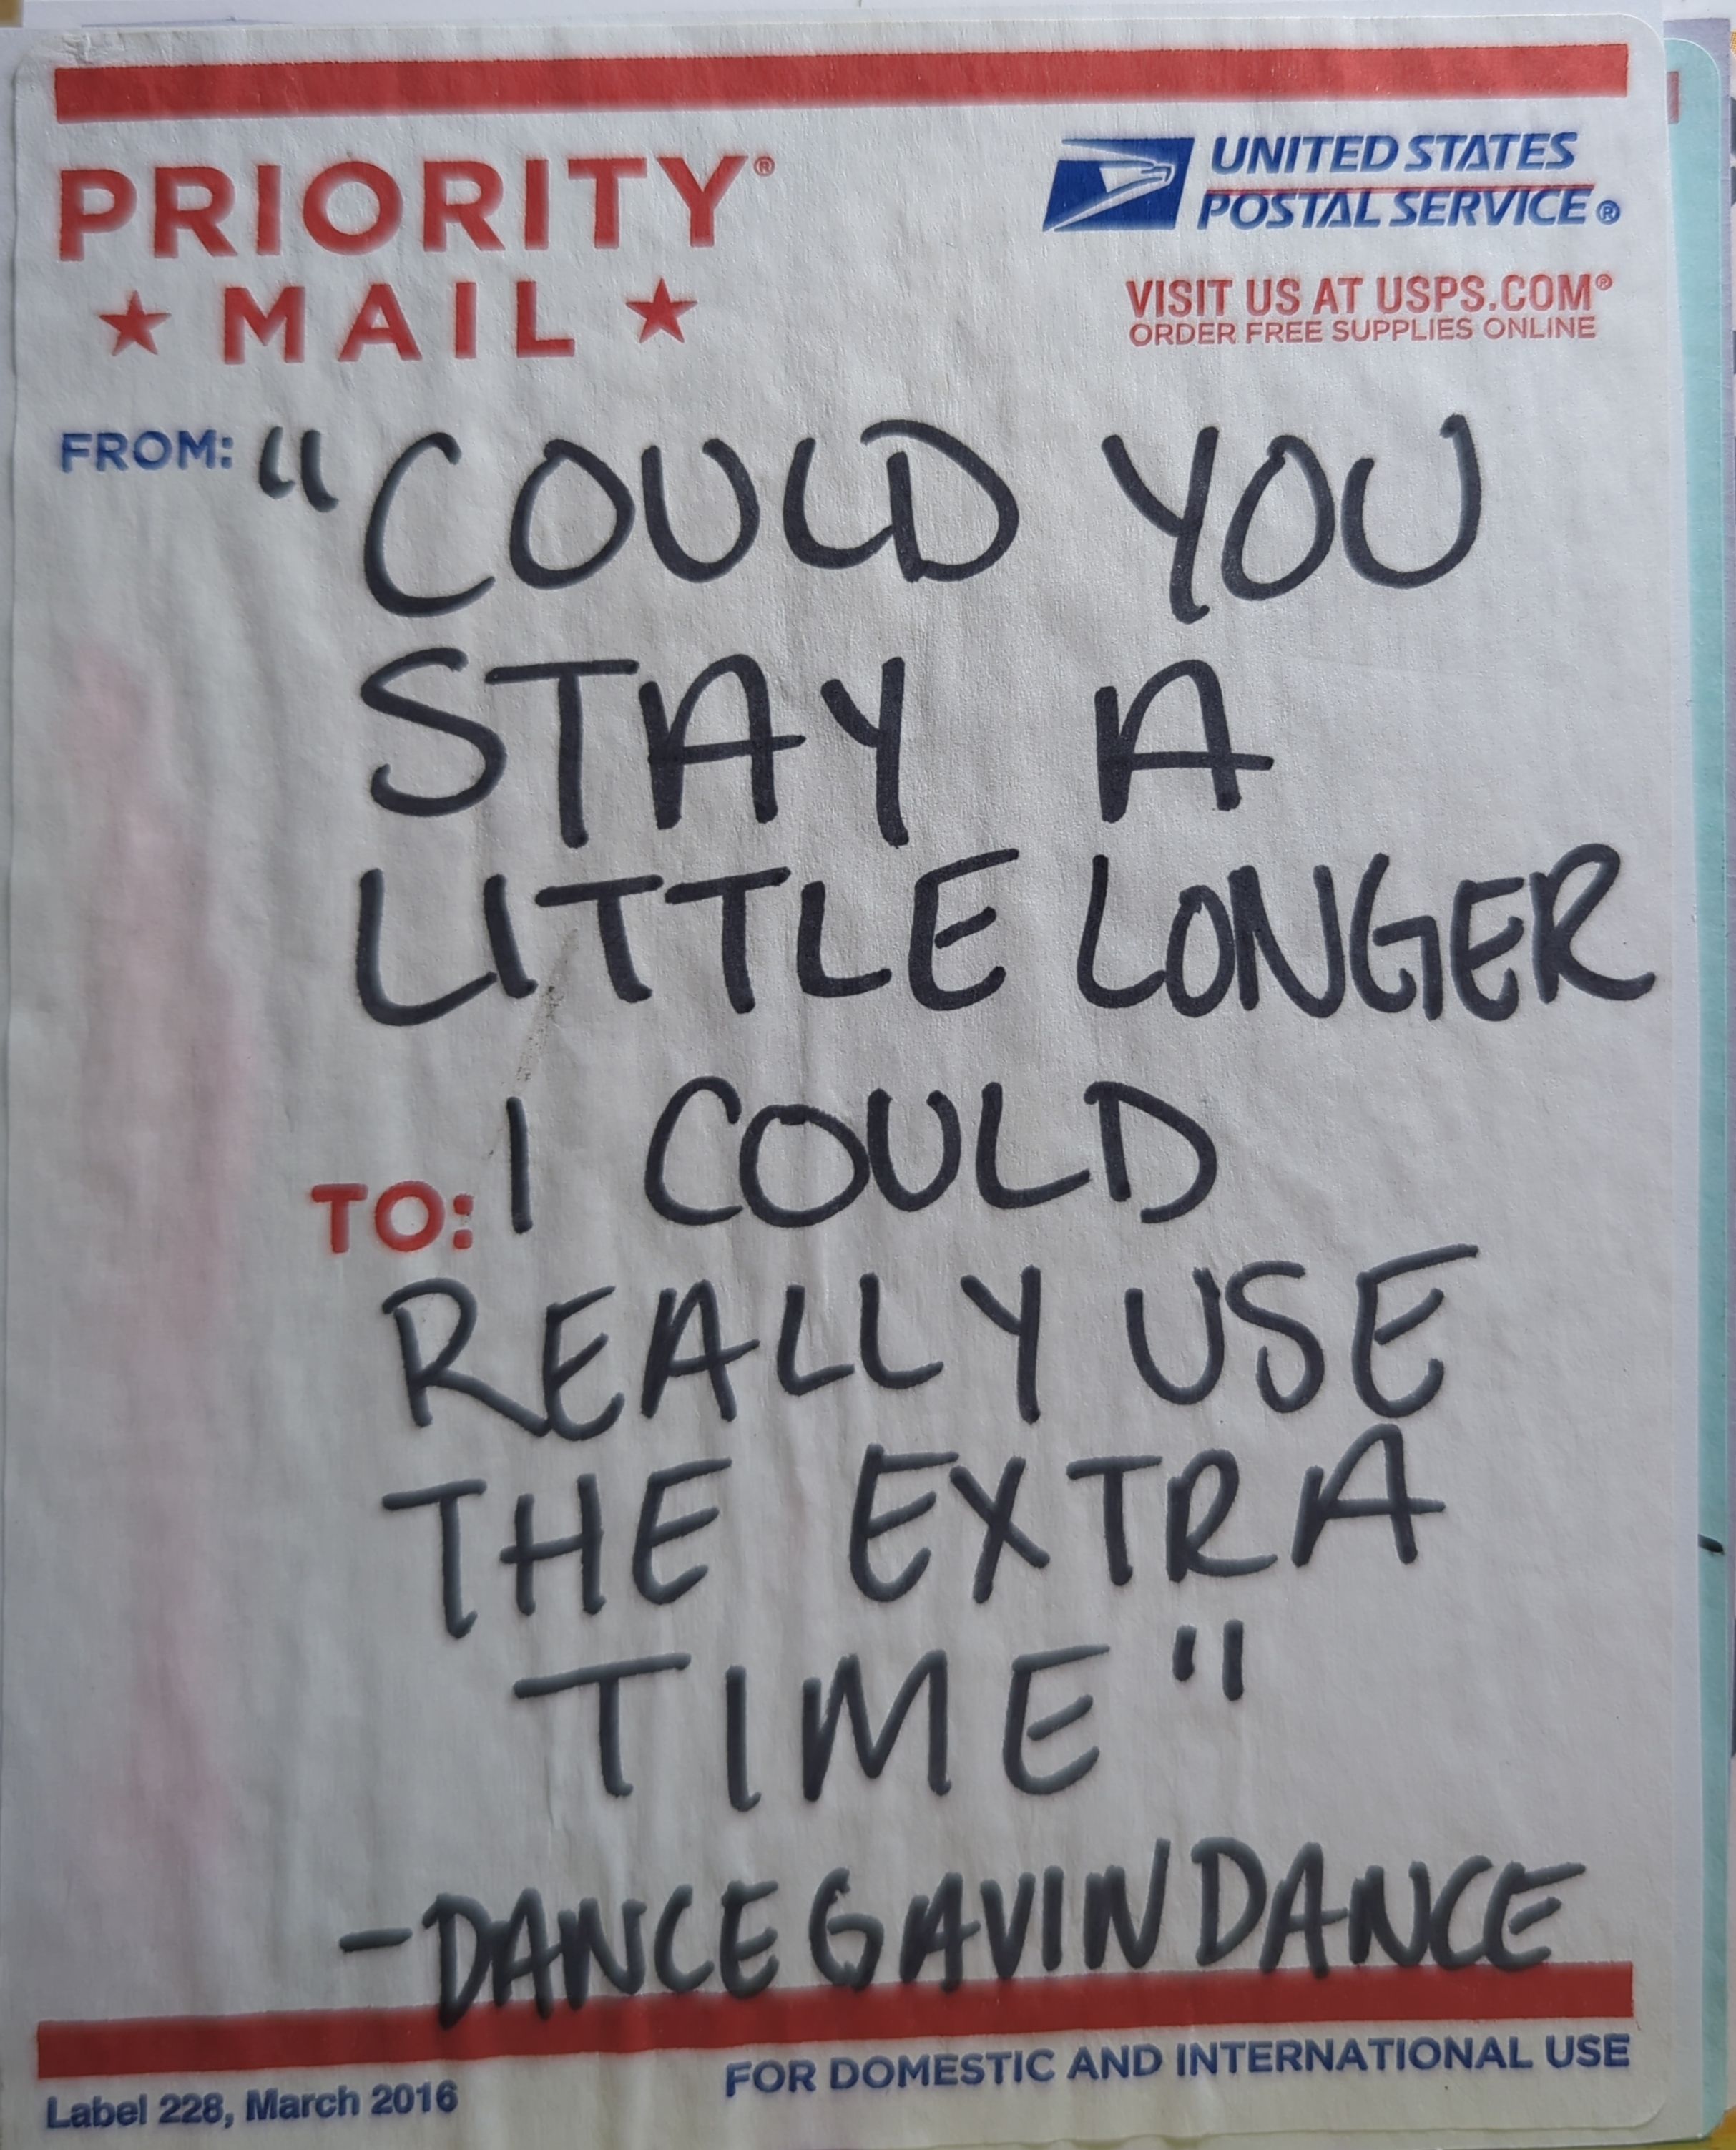 PRIORITY®
★ MAIL ★
UNITED STATES
POSTAL SERVICE®
VISIT US AT USPS.COM®
ORDER FREE SUPPLIES ONLINE
FROM: "COULD YOU
STAY A
LITTLE LONGER
TO: I COULD
REALLY USE
THE EXTRA
TIME"
-DANCE GAVIN DANCE
FOR DOMESTIC AND INTERNATIONAL USE
Label 228, March 2016